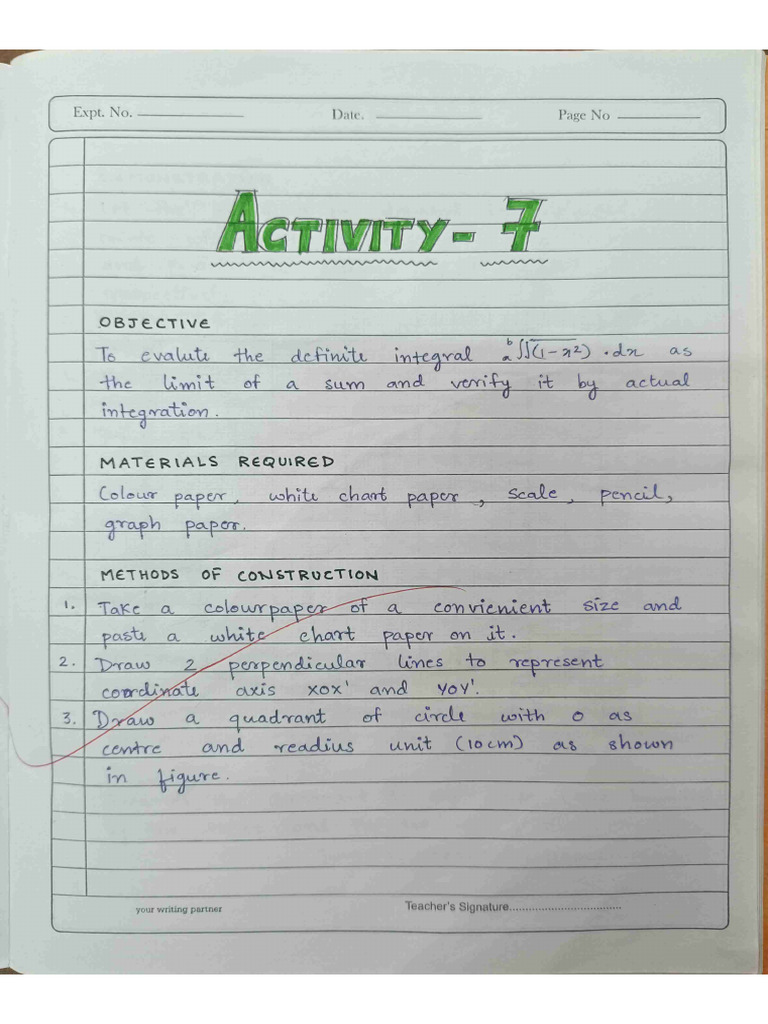 Expt. No.
Date.
Page No
ACTIVITY - 7
OBJECTIVE
To evalute the definite integral a b ∫√(1-x²) . dx as
the limit of a sum and verify it by actual
integration.
MATERIALS REQUIRED
Colour paper, white chart paper, scale, pencil,
graph paper.
METHODS OF CONSTRUCTION
1. Take a colourpaper of a convienient size and
paste a white chart paper on it.
2. Draw 2 perpendicular lines to represent
coordinate axis xox' and yoy'.
3. Draw a quadrant of circle with o as
centre and readius unit (10cm) as shown
in figure.
your writing partner
Teacher's Signature....................................